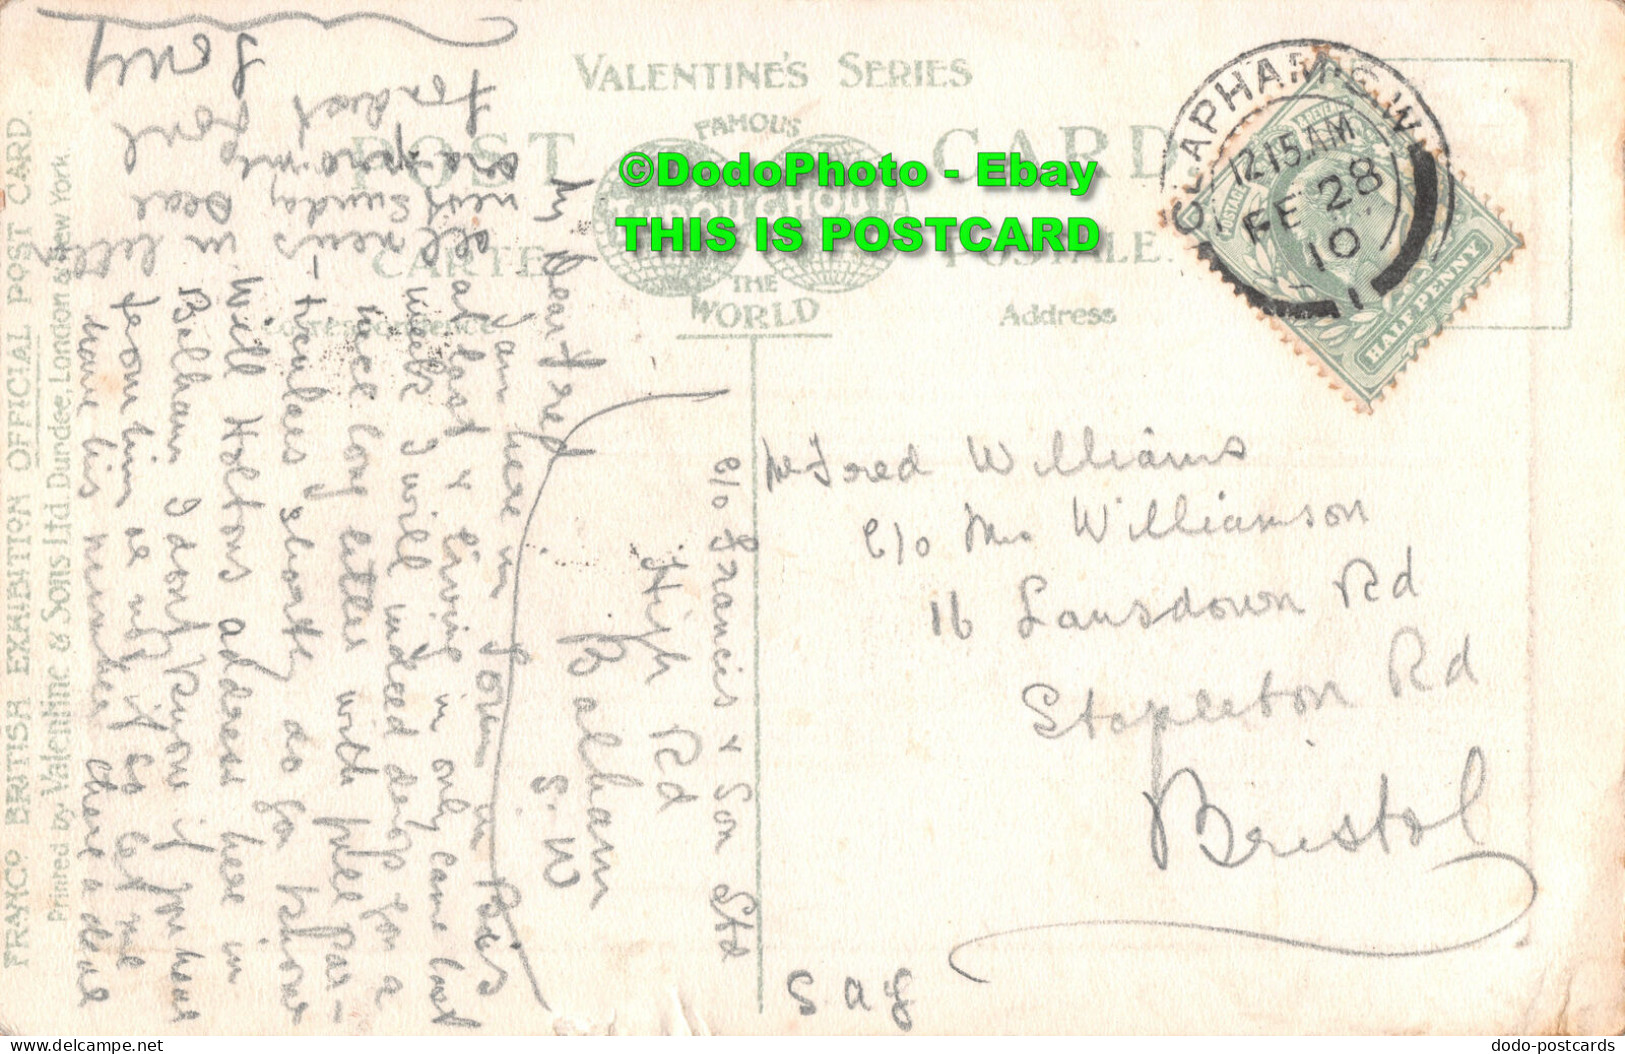 VALENTINE'S SERIES
FAMOUS
THROUGHOUT
THE
WORLD
POST CARD
CARTE POSTALE.
Correspondence
Address
FRANCO BRITISH EXHIBITION OFFICIAL POST CARD.
Printed by Valentine & Sons Ltd. Dundee, London & New York.
CLAPHAM S.W.
12.15.AM
FE 28
10
1
HALF PENNY
©DodoPhoto - Ebay
THIS IS POSTCARD
c/o Francis & Son Ltd
High Rd
Balham
S.W
My Dear Fred
I am here in Town
at last & living in only came last
week I will indeed drop you a
nice long letter with full Par-
ticulars shortly do you know
Will Holtons address here in
Balham I dont know if you hear
from him or not if so let me
have his number there a deal
Mr Fred Williams
c/o Mrs Williamson
16 Lansdown Rd
Stapleton Rd
Bristol
dodo-postcards